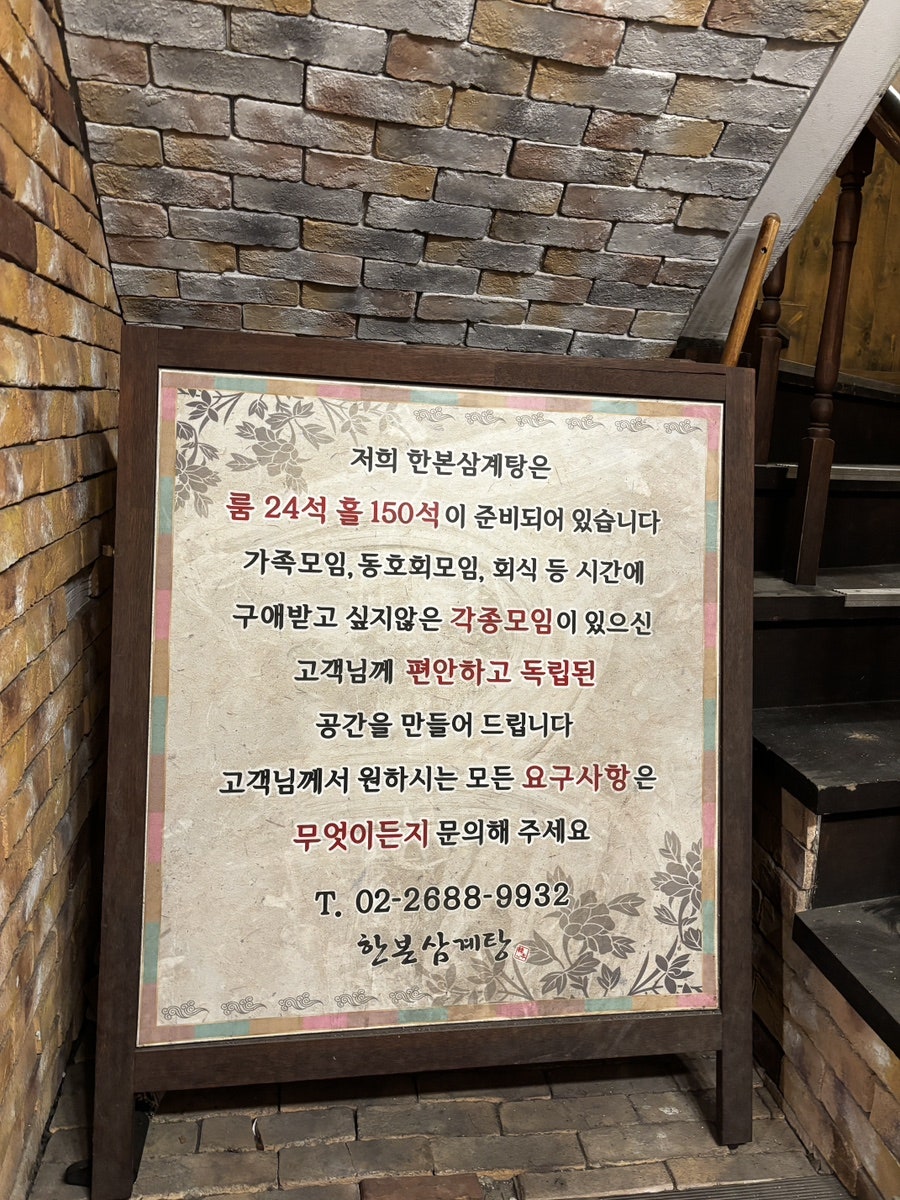 저희 한본삼계탕은
룸 24석 홀 150석이 준비되어 있습니다
가족모임, 동호회모임, 회식 등 시간에
구애받고 싶지않은 각종모임이 있으신
고객님께 편안하고 독립된
공간을 만들어 드립니다
고객님께서 원하시는 모든 요구사항은
무엇이든지 문의해 주세요
T. 02-2688-9932
한본삼계탕